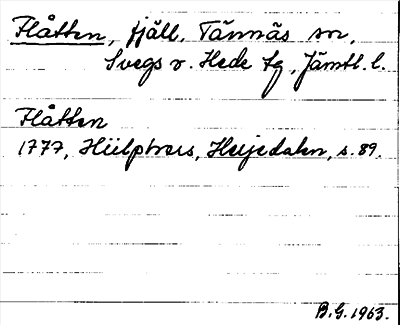 Flåtten, fjäll, Tännäs sn,
Svegs o. Hede tg, Jämtl. l.
Flåtten
1777, Hülphers, Herjedalen, s. 89.
B.G. 1963.